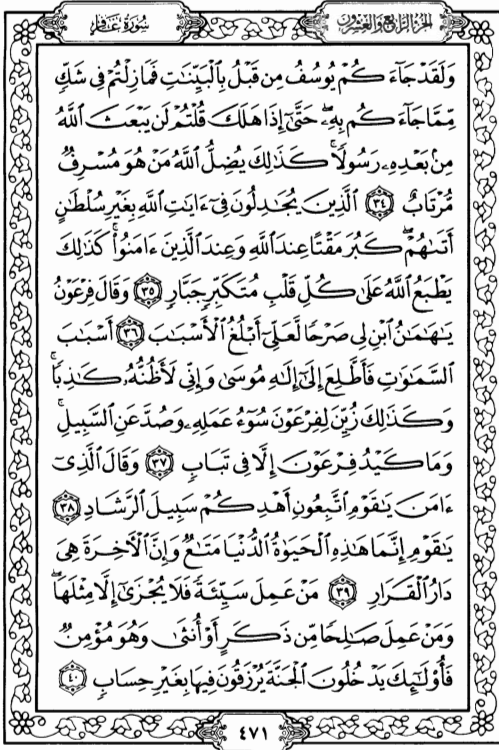 سُورَةُ غَافِرٍ
الجُزْءُ الرَّابِعُ وَالعِشْرُونَ
وَلَقَدْ جَآءَكُمْ يُوسُفُ مِن قَبْلُ بِٱلْبَيِّنَٰتِ فَمَازِلْتُمْ فِى شَكٍّ
مِّمَّا جَآءَكُم بِهِۦ ۖ حَتَّىٰٓ إِذَا هَلَكَ قُلْتُمْ لَن يَبْعَثَ ٱللَّهُ
مِنۢ بَعْدِهِۦ رَسُولًا ۚ كَذَٰلِكَ يُضِلُّ ٱللَّهُ مَنْ هُوَ مُسْرِفٌ
مُّرْتَابٌ ٣٤ ٱلَّذِينَ يُجَٰدِلُونَ فِىٓ ءَايَٰتِ ٱللَّهِ بِغَيْرِ سُلْطَٰنٍ
أَتَىٰهُمْ ۖ كَبُرَ مَقْتًا عِندَ ٱللَّهِ وَعِندَ ٱلَّذِينَ ءَامَنُوا۟ ۚ كَذَٰلِكَ
يَطْبَعُ ٱللَّهُ عَلَىٰ كُلِّ قَلْبِ مُتَكَبِّرٍ جَبَّارٍ ٣٥ وَقَالَ فِرْعَوْنُ
يَٰهَٰمَٰنُ ٱبْنِ لِى صَرْحًا لَّعَلِّىٓ أَبْلُغُ ٱلْأَسْبَٰبَ ٣٦ أَسْبَٰبَ
ٱلسَّمَٰوَٰتِ فَأَطَّلِعَ إِلَىٰٓ إِلَٰهِ مُوسَىٰ وَإِنِّى لَأَظُنُّهُۥ كَٰذِبًا ۚ
وَكَذَٰلِكَ زُيِّنَ لِفِرْعَوْنَ سُوٓءُ عَمَلِهِۦ وَصُدَّ عَنِ ٱلسَّبِيلِ ۚ
وَمَا كَيْدُ فِرْعَوْنَ إِلَّا فِى تَبَابٍ ٣٧ وَقَالَ ٱلَّذِىٓ
ءَامَنَ يَٰقَوْمِ ٱتَّبِعُونِ أَهْدِكُمْ سَبِيلَ ٱلرَّشَادِ ٣٨
يَٰقَوْمِ إِنَّمَا هَٰذِهِ ٱلْحَيَوٰةُ ٱلدُّنْيَا مَتَٰعٌ وَإِنَّ ٱلْءَاخِرَةَ هِىَ
دَارُ ٱلْقَرَارِ ٣٩ مَنْ عَمِلَ سَيِّئَةً فَلَا يُجْزَىٰٓ إِلَّا مِثْلَهَا ۖ
وَمَنْ عَمِلَ صَٰلِحًا مِّن ذَكَرٍ أَوْ أُنثَىٰ وَهُوَ مُؤْمِنٌ
فَأُو۟لَٰٓئِكَ يَدْخُلُونَ ٱلْجَنَّةَ يُرْزَقُونَ فِيهَا بِغَيْرِ حِسَابٍ ٤٠
٤٧١